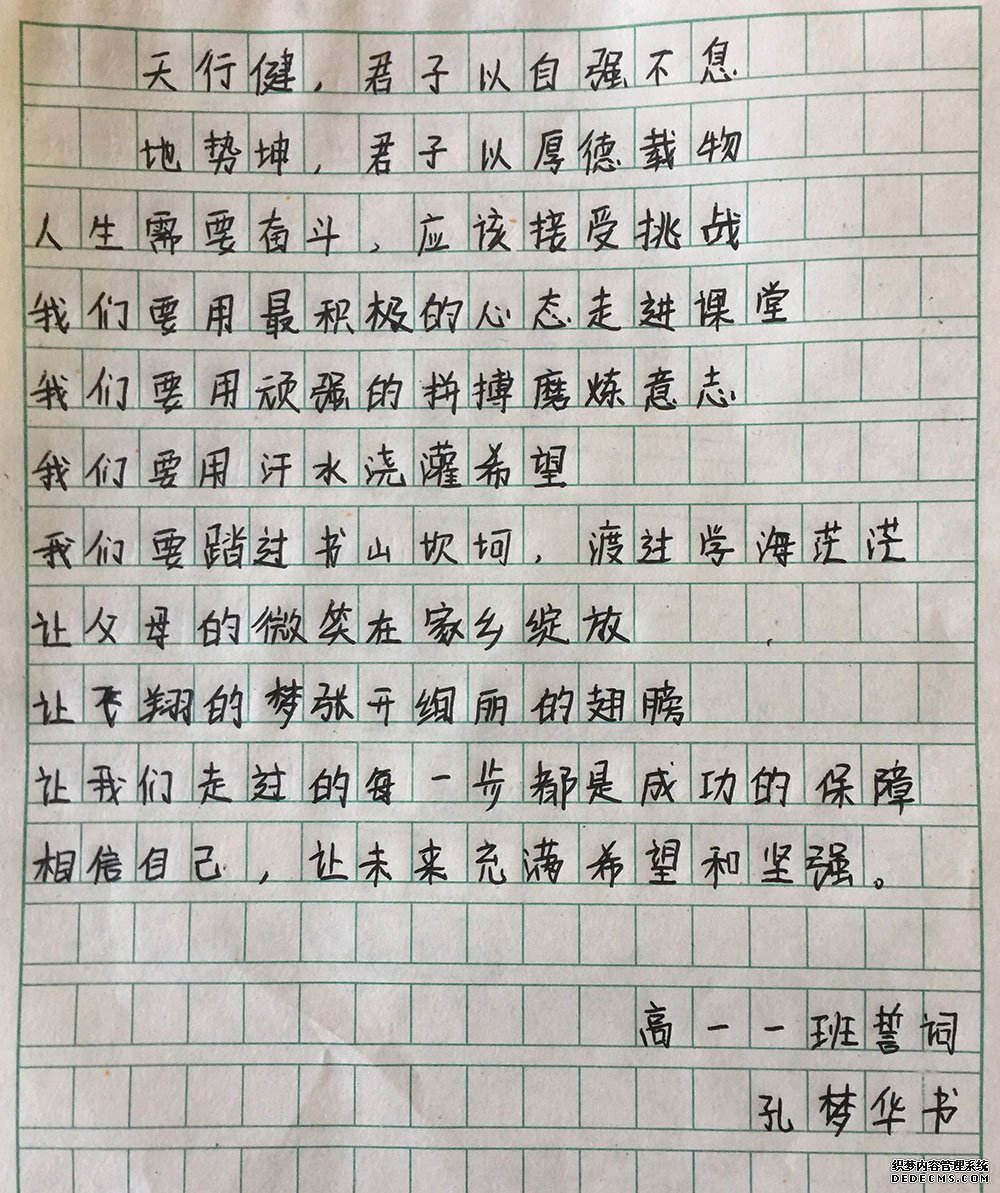 天行健，君子以自强不息
地势坤，君子以厚德载物
人生需要奋斗，应该接受挑战
我们要用最积极的心态走进课堂
我们要用顽强的拼搏磨炼意志
我们要用汗水浇灌希望
我们要踏过书山坎坷，渡过学海茫茫
让父母的微笑在家乡绽放
让飞翔的梦张开绚丽的翅膀
让我们走过的每一步都是成功的保障
相信自己，让未来充满希望和坚强。
高一一班誓词
孔梦华书
织梦内容管理系统
DEDECMS.COM